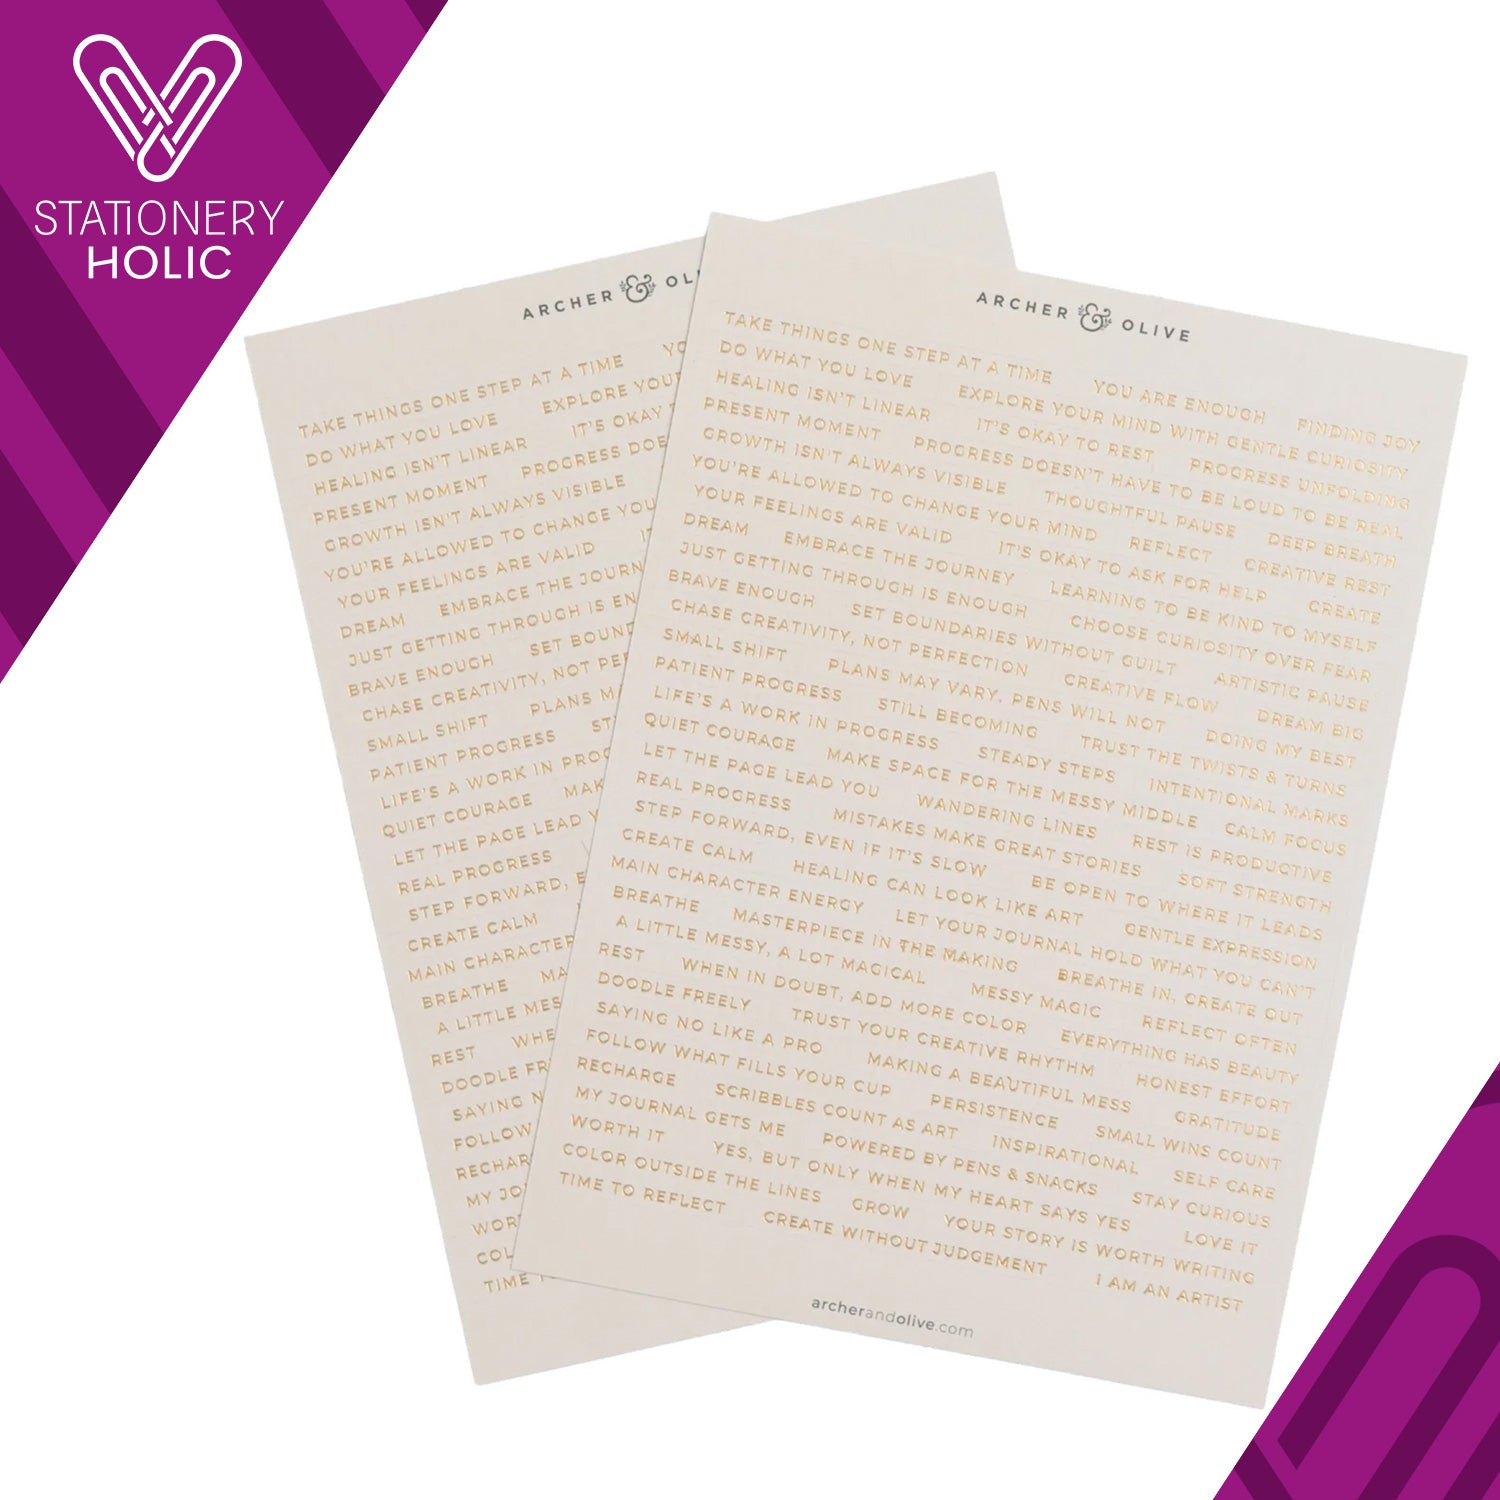 STATIONERY
HOLIC
ARCHER & OL
TAKE THINGS ONE STEP AT A TIME YO
DO WHAT YOU LOVE EXPLORE YOUR
HEALING ISN'T LINEAR IT'S OKAY T
PRESENT MOMENT PROGRESS DOE
GROWTH ISN'T ALWAYS VISIBLE
YOU'RE ALLOWED TO CHANGE YOU
YOUR FEELINGS ARE VALID I
DREAM EMBRACE THE JOURN
JUST GETTING THROUGH IS EN
BRAVE ENOUGH SET BOUND
CHASE CREATIVITY, NOT PER
SMALL SHIFT PLANS M
PATIENT PROGRESS ST
LIFE'S A WORK IN PROG
QUIET COURAGE MAK
LET THE PAGE LEAD Y
REAL PROGRESS
STEP FORWARD, E
CREATE CALM
MAIN CHARACTER
BREATHE MA
A LITTLE MES
REST WHE
DOODLE FR
SAYING N
FOLLOW
RECHAR
MY JO
WOR
COL
TIME T
ARCHER & OLIVE
TAKE THINGS ONE STEP AT A TIME YOU ARE ENOUGH FINDING JOY
DO WHAT YOU LOVE EXPLORE YOUR MIND WITH GENTLE CURIOSITY
HEALING ISN'T LINEAR IT'S OKAY TO REST PROGRESS UNFOLDING
PRESENT MOMENT PROGRESS DOESN'T HAVE TO BE LOUD TO BE REAL
GROWTH ISN'T ALWAYS VISIBLE THOUGHTFUL PAUSE DEEP BREATH
YOU'RE ALLOWED TO CHANGE YOUR MIND REFLECT CREATIVE REST
YOUR FEELINGS ARE VALID IT'S OKAY TO ASK FOR HELP CREATE
DREAM EMBRACE THE JOURNEY LEARNING TO BE KIND TO MYSELF
JUST GETTING THROUGH IS ENOUGH CHOOSE CURIOSITY OVER FEAR
BRAVE ENOUGH SET BOUNDARIES WITHOUT GUILT ARTISTIC PAUSE
CHASE CREATIVITY, NOT PERFECTION CREATIVE FLOW DREAM BIG
SMALL SHIFT PLANS MAY VARY, PENS WILL NOT DOING MY BEST
PATIENT PROGRESS STILL BECOMING TRUST THE TWISTS & TURNS
LIFE'S A WORK IN PROGRESS STEADY STEPS INTENTIONAL MARKS
QUIET COURAGE MAKE SPACE FOR THE MESSY MIDDLE CALM FOCUS
LET THE PAGE LEAD YOU WANDERING LINES REST IS PRODUCTIVE
REAL PROGRESS MISTAKES MAKE GREAT STORIES SOFT STRENGTH
STEP FORWARD, EVEN IF IT'S SLOW BE OPEN TO WHERE IT LEADS
CREATE CALM HEALING CAN LOOK LIKE ART GENTLE EXPRESSION
MAIN CHARACTER ENERGY LET YOUR JOURNAL HOLD WHAT YOU CAN'T
BREATHE MASTERPIECE IN THE MAKING BREATHE IN, CREATE OUT
A LITTLE MESSY, A LOT MAGICAL MESSY MAGIC REFLECT OFTEN
REST WHEN IN DOUBT, ADD MORE COLOR EVERYTHING HAS BEAUTY
DOODLE FREELY TRUST YOUR CREATIVE RHYTHM HONEST EFFORT
SAYING NO LIKE A PRO MAKING A BEAUTIFUL MESS GRATITUDE
FOLLOW WHAT FILLS YOUR CUP PERSISTENCE SMALL WINS COUNT
RECHARGE SCRIBBLES COUNT AS ART INSPIRATIONAL SELF CARE
MY JOURNAL GETS ME POWERED BY PENS & SNACKS STAY CURIOUS
WORTH IT YES, BUT ONLY WHEN MY HEART SAYS YES LOVE IT
COLOR OUTSIDE THE LINES GROW YOUR STORY IS WORTH WRITING
TIME TO REFLECT CREATE WITHOUT JUDGEMENT I AM AN ARTIST
archerandolive.com